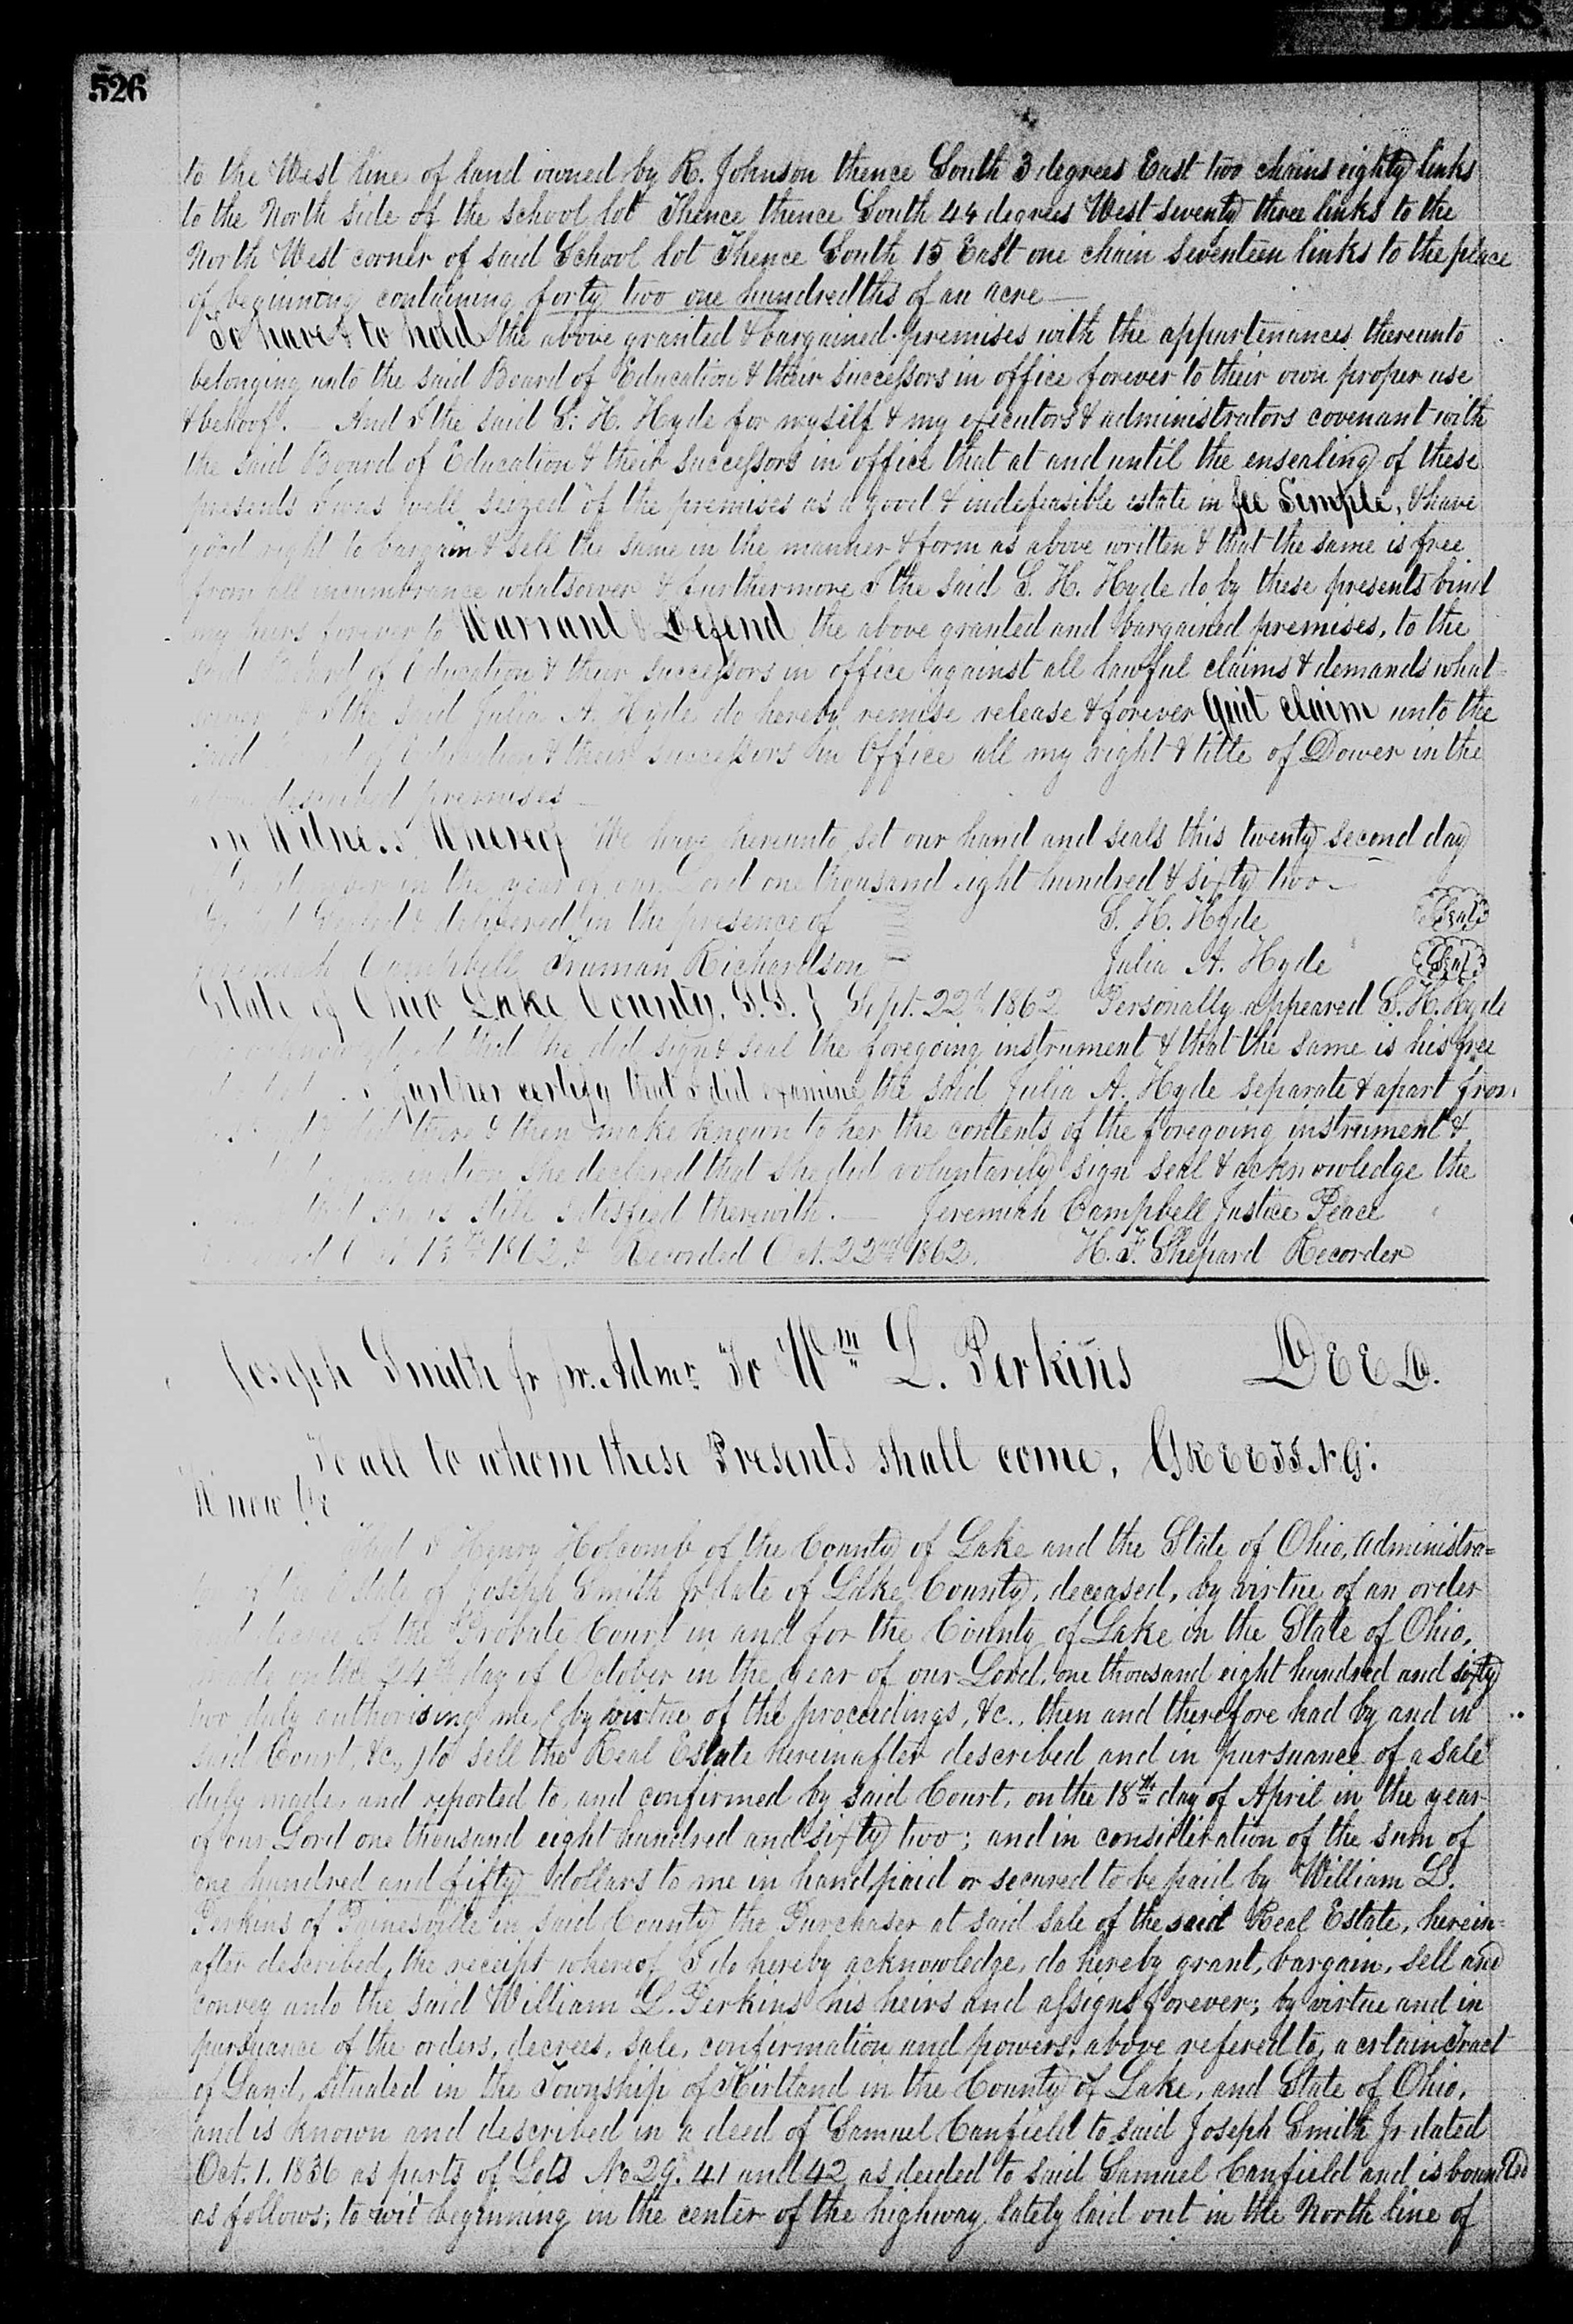 DEEDS
526
to the West line of land owned by R. Johnson thence South 3 degrees East two chains eighty links
to the North side of the school lot Thence thence South 44 degrees West seventy three links to the
North West corner of said School lot Thence South 15 East one chain seventeen links to the place
of beginning containing forty two one hundredths of an acre —
To have & to hold the above granted & bargained premises with the appurtenances thereunto
belonging unto the said Board of Education & their successors in office forever to their own proper use
& behoof. And I the said S. H. Hyde for myself & my executors & administrators covenant with
the said Board of Education & their successors in office that at and until the ensealing of these
presents I was well seized of the premises as a good & indefeasible estate in fee Simple, & have
good right to bargain & sell the same in the manner & form as above written & that the same is free
from all incumbrance whatsoever & furthermore I the said S. H. Hyde do by these presents bind
my heirs forever to Warrant & Defend the above granted and bargained premises, to the
said Board of Education & their successors in office against all lawful claims & demands what-
soever the said Julia A. Hyde do hereby remise release & forever Quit claim unto the
said of Education & their successors in Office all my right & title of Dower in the
described premises
In Witness Whereof We have hereunto set our hand and seals this twenty second day
in the year of our Lord one thousand eight hundred & sixty two —
delivered in the presence of S. H. Hyde Seal
Jeremiah Campbell Truman Richardson Julia A. Hyde Seal
State of Ohio Lake County, S.S. } Sept. 22d 1862 Personally appeared S. H. Hyde
that he did sign & seal the foregoing instrument & that the same is his free
further certify that I did examine the said Julia A. Hyde separate & apart from
there & then make known to her the contents of the foregoing instrument &
she declared that she did voluntarily sign seal & acknowledge the
still satisfied therewith. — Jeremiah Campbell Justice Peace
1862 & Recorded Oct. 22nd 1862. H. F. Shepard Recorder
Joseph Smith Jr Admr. To Wm L. Perkins DEED.
To all to whom these Presents shall come, GREETING:
Know Ye
That I Henry Holcomb of the County of Lake and the State of Ohio, Administra=
state of Joseph Smith Jr late of Lake County, deceased, by virtue of an order
of the Probate Court in and for the County of Lake in the State of Ohio,
made on the 24th day of October in the year of our Lord, one thousand eight hundred and sixty
two duly authorising me, (by virtue of the proceedings, &c., then and therefore had by and in
said Court, &c.,) to sell the Real Estate hereinafter described and in pursuance of a sale
duly made, and reported to, and confirmed by said Court, on the 18th day of April in the year
of our Lord one thousand eight hundred and sixty two; and in consideration of the sum of
one hundred and fifty dollars to me in hand paid or secured to be paid by William L.
Perkins of Painesville in said County the Purchaser at said sale of the said Real Estate, herein=
after described, the receipt whereof I do hereby acknowledge, do hereby grant, bargain, sell and
convey unto the said William L. Perkins his heirs and assigns forever; by virtue and in
pursuance of the orders, decrees, sale, confirmation and powers, above refered to, a certain Tract
of Land, situated in the Township of Kirtland in the County of Lake, and State of Ohio,
and is known and described in a deed of Samuel Canfield to said Joseph Smith Jr dated
Oct. 1. 1836 as parts of Lots No 29. 41 and 42 as deeded to said Samuel Canfield and is bounded
as follows; to wit beginning in the center of the highway lately laid out in the North line of